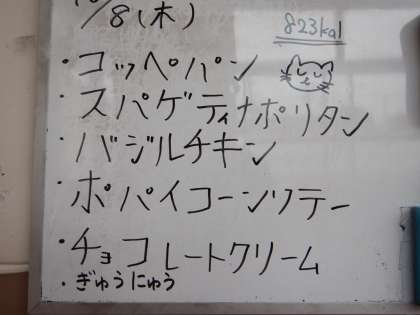 10/8(木)
823kal
・コッペパン
・スパゲティナポリタン
・バジルチキン
・ポパイコーンソテー
・チョコレートクリーム
・ぎゅうにゅう